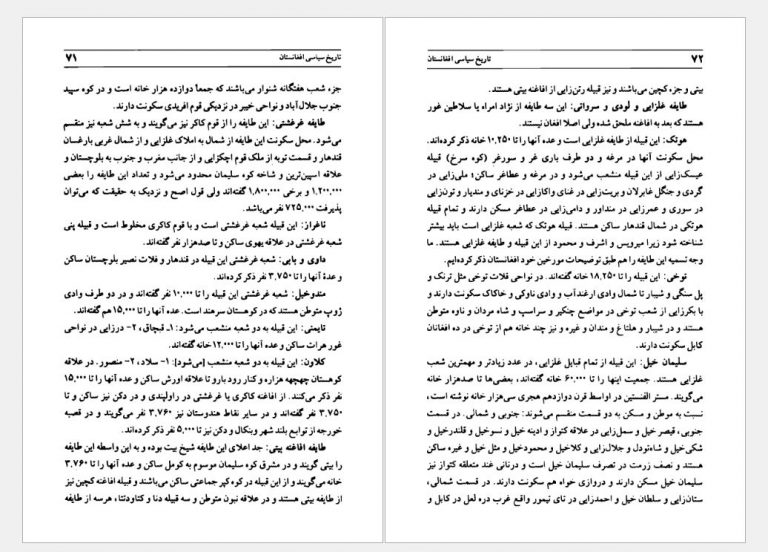 تاریخ سیاسی افغانستان ۷۱
جزء شعب هفتگانه شنوار می‌باشند که جمعاً دوازده هزار خانه است و در کوه سپید
جنوب جلال‌آباد و نواحی خیبر در نزدیکی قوم افریدی سکونت دارند.
طایفه غرغشتی: این طایفه را از قوم کاکر نیز می‌گویند و به شش شعبه نیز منقسم
می‌شود. محل سکونت این طایفه از شمال به املاک غلزایی و از شمال غربی بارغسان
قندهار و قسمت توبه از ملک قوم اچکزایی و از جانب مغرب و جنوب به بلوچستان و
علاقه اسپین‌ترین و شاخه کوه سلیمان محدود می‌شود و تعداد این طایفه را بعضی
۱,۲۰۰,۰۰۰ و برخی ۱,۸۰۰,۰۰۰ گفته‌اند ولی قول اصح و نزدیک به حقیقت که می‌توان
پذیرفت ۷۲۵,۰۰۰ نفر می‌باشد.
ناغراز: این قبیله شعبه غرغشتی است و با قوم کاکری مخلوط است و قبیله پنی
شعبه غرغشتی در علاقه یهوی ساکن و تا صدهزار نفر گفته‌اند.
داوی و بابی: شعبه غرغشتی این قبیله در قندهار و فلات نصیر بلوچستان ساکن
و عدهٔ آنها را تا ۳,۷۵۰ نفر ذکر کرده‌اند.
مندوخیل: شعبه غرغشتی این قبیله را تا ۱۰,۰۰۰ نفر گفته‌اند و در دو طرف وادی
ژوپ متوطن هستند که در کوهستان سرهند است. عده آنها را تا ۱۵,۰۰۰ هم گفته‌اند.
تایمنی: این قبیله به دو شعبه منشعب می‌شود: ۱ـ قبچاق، ۲- درزایی در نواحی
غور هرات ساکن و عده آنها را تا ۱۲,۰۰۰ خانه گفته‌اند.
کلاون: این قبیله به دو شعبه منشعب [می‌شود]: ۱- سلاد، ۲- منصور. در علاقه
کوهستان چهچهه هزاره و کنار رود بارو تا علاقه اورش ساکن و عده آنها را تا ۱۵,۰۰۰
نفر ذکر می‌کنند. از افاغنه کاکری یا غرغشتی در راولپندی و در دکن نیز ساکن و تا
۳,۷۵۰ نفر گفته‌اند و در سایر نقاط هندوستان نیز ۳,۷۶۰ نفر می‌گویند و در قصبه
خورجه از توابع بلند شهر وبنکال و دکن نیز تا ۵,۰۰۰ نفر ذکر کرده‌اند.
طایفه افاغنه بیتی: جد اعلای این طایفه شیخ بیت بوده و به این واسطه این طایفه
را بیتی گویند و در مشرق کوه سلیمان موسوم به کومل ساکن و عده آنها را تا ۳,۷۶۰
خانه می‌گویند و از این قبیله در کوه کپر جماعتی ساکن می‌باشند و قبیله افاغنه کچین نیز
از طایفه بیتی هستند و در علاقه نبون متوطن و سه قبیله دنا و کتاودتنا، هرسه از طایفه
۷۲ تاریخ سیاسی افغانستان
بیتی و جزء کچین می‌باشند و نیز قبیله رتن‌زایی از افاغنه بیتی هستند.
طایفه غلزایی و لودی و سروانی: این سه طایفه از نژاد امراء یا سلاطین غور
هستند که بعد به افاغنه ملحق شده ولی اصلا افغان نیستند.
هوتک: این قبیله از طایفه غلزایی است و عده آنها را تا ۱۰,۲۵۰ خانه ذکر کرده‌اند.
محل سکونت آنها در مرغه و دو طرف باری غر و سورغر (کوه سرخ) قبیله
عیسک‌زایی از این قبیله منشعب می‌شود و در مرغه و عطاغر ساکن؛ ملی‌زایی در
گردی و جنگل غابرلان و بریت‌زایی در غنای واکازایی در خزنای و مندیار و تون‌زایی
در سوری و عمرزایی در منداور و دامی‌زایی در عطاغر مسکن دارند و تمام قبیله
هوتکی در شمال قندهار ساکن هستند. قبیله هوتک که شعبه غلزایی است باید بیشتر
شناخته شود زیرا میرویس و اشرف و محمود از این قبیله و طایفه غلزایی هستند. ما
وجه تسمیه این طایفه را هم طبق توضیحات مورخین خود افغانستان ذکر کرده‌ایم.
توخی: این قبیله را تا ۱۸,۲۵۰ خانه گفته‌اند. در نواحی قلات توخی مثل ترنک و
پل سنگی و شیبار تا شمال وادی ارغندآب و وادی ناوکی و خاکاک سکونت دارند و
با بکرزایی از شعب توخی در مواضع چنکیر و سراسپ و شاه مردان و ناوه متوطن
هستند و در شیبار و هلتاغ و مندان و غیره و نیز چند خانه هم از توخی در ده افغانان
کابل سکونت دارند.
سلیمان خیل: این قبیله از تمام قبایل غلزایی، در عدد زیادتر و مهمترین شعب
غلزایی هستند. جمعیت اینها را تا ۶۰,۰۰۰ خانه گفته‌اند، بعضی‌ها تا صدهزار خانه
می‌گویند. مستر الفنستین در اواسط قرن دوازدهم هجری سی‌هزار خانه نوشته است،
نسبت به موطن و مسکن به دو قسمت منقسم می‌شوند: جنوبی و شمالی. در قسمت
جنوبی، قیصر خیل و سمل‌زایی در علاقه کتواز و ادینه خیل و نسوخیل و قلندرخیل و
شکی‌خیل و شاه‌تودل و جلال‌زایی و کلاخیل و محمودخیل و مثل خیل و غیره ساکن
هستند و نصف زرمت در تصرف سلیمان خیل است و درنانی غند متعلقه کتواز نیز
سلیمان خیل مسکن دارند و دروازی خواه هم سکونت دارند. در قسمت شمالی،
ستان‌زایی و سلطان خیل و احمدزایی در تای تیمور واقع غرب دره لعل در کابل و